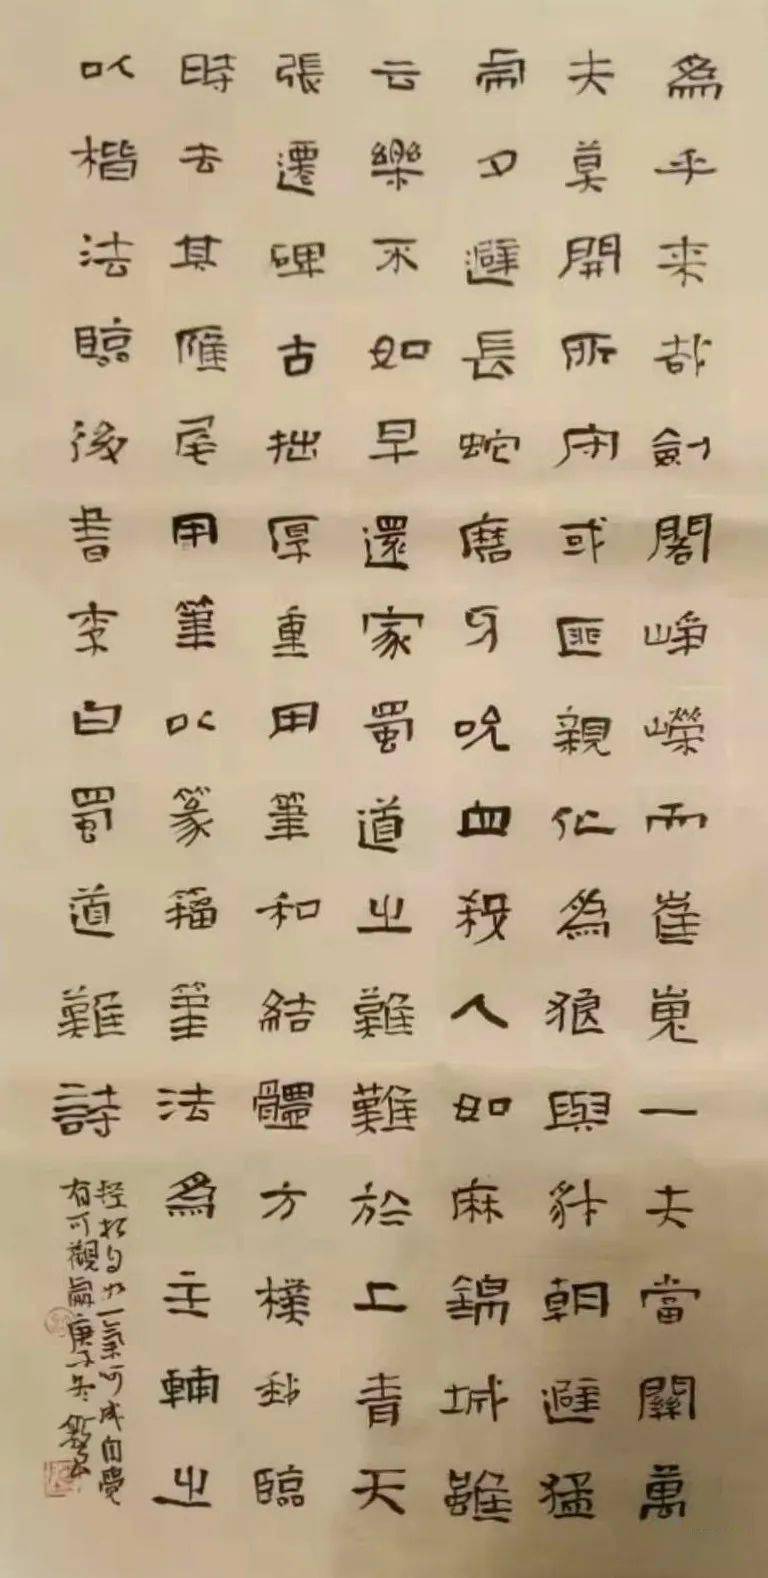 為乎来哉劍閣崢嶸而崔嵬一夫當關萬
夫莫開所守或匪親化為狼與豺朝避猛
虎夕避長蛇磨牙吮血殺人如麻錦城雖
云樂不如早還家蜀道之難難於上青天
張遷碑古拙厚重用筆和結體方樸我臨
時去其雁尾用筆以篆籀筆法為主輔之
以楷法臨後書李白蜀道難詩
一氣呵成自覺
有可觀處庚子冬